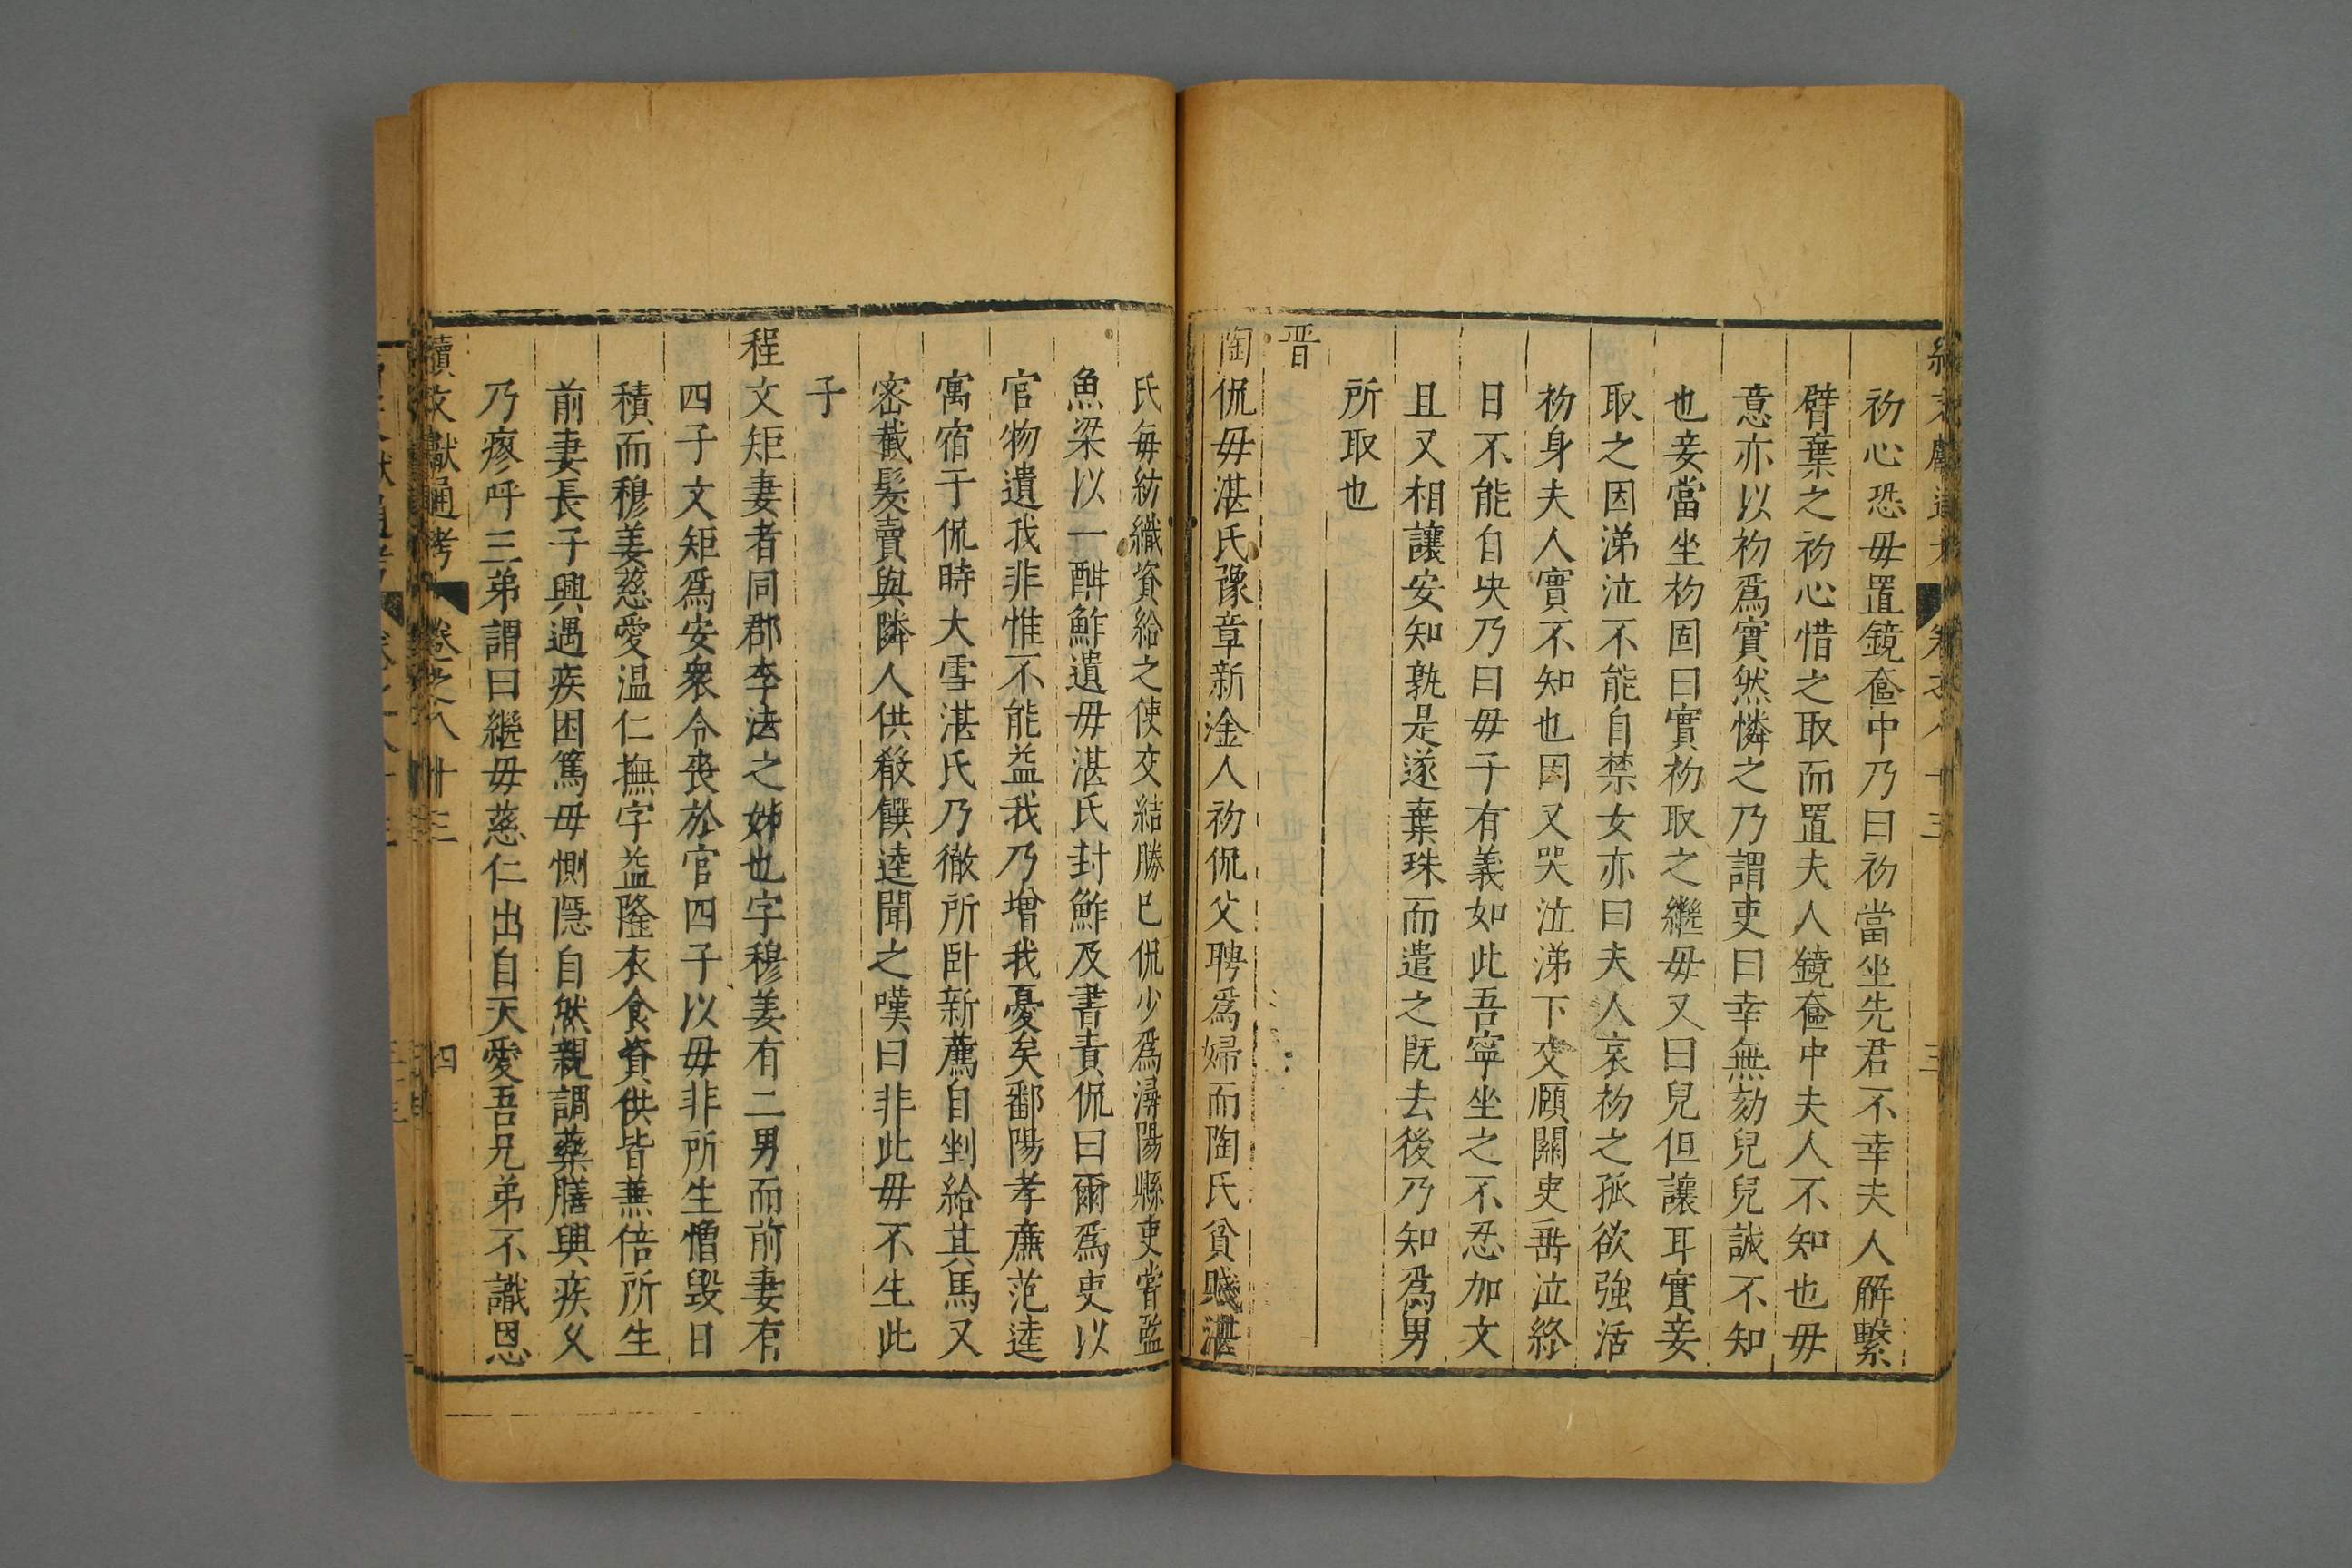 初心恐毋置鏡奩中乃曰初當坐先君不幸夫人解繫
臂棄之初心惜之取而置夫人鏡奩中夫人不知也毋
意亦以初爲實然憐之乃謂吏曰幸無劾兒兒誠不知
也妾當坐初固曰實初取之繼毋又曰兒但讓耳實妾
取之因涕泣不能自禁女亦曰夫人哀初之孤欲強活
初身夫人實不知也因又哭泣涕下交頤關吏垂泣終
日不能自决乃曰毋子有義如此吾寧坐之不忍加文
且又相讓安知孰是遂棄珠而遣之既去後乃知爲男
所取也
晋
陶侃毋湛氏豫章新淦人初侃父聘爲婦而陶氏貧賤湛
氏每紡織資給之使交結勝已侃少爲潯陽縣吏嘗監
魚梁以一酣鮓遺毋湛氏封鮓及書責侃曰爾爲吏以
官物遺我非惟不能益我乃增我憂矣鄱陽孝廉范逵
寓宿于侃時大雪湛氏乃徹所卧新薦自剉給其馬又
密截髮賣與隣人供殽饌逵聞之嘆曰非此毋不生此
子
程文矩妻者同郡李法之姊也字穆姜有二男而前妻有
四子文矩爲安衆令丧於官四子以毋非所生憎毀日
積而穆姜慈愛温仁撫字益隆衣食資供皆兼倍所生
前妻長子興遇疾困篤毋惻隱自然親調藥膳興疾乂
乃瘳呼三弟謂曰繼毋慈仁出自天愛吾兄弟不識恩
續文獻通考 卷之八十三 四